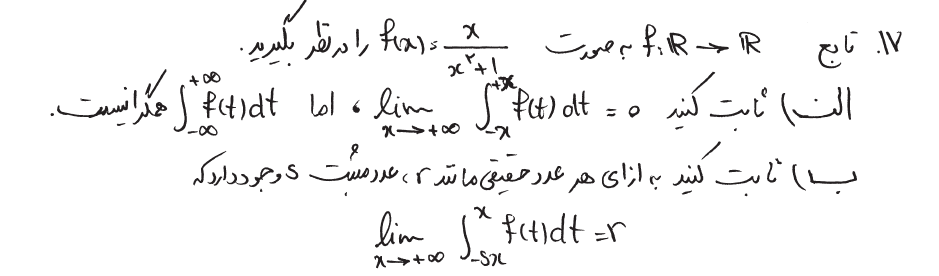 ۱۷. تابع f:ℝ → ℝ به صورت f(x) = x/(x²+1) را در نظر بگیرید.
الف) ثابت کنید lim_{x→+∞} ∫_{-x}^{+x} f(t)dt = 0، اما ∫_{-∞}^{+∞} f(t)dt همگرا نیست.
ب) ثابت کنید به ازای هر عدد حقیقی مانند r، عدد مثبت s وجود دارد که
lim_{x→+∞} ∫_{-sx}^{x} f(t)dt = r